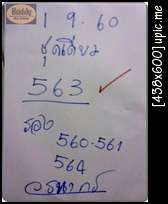 Buddy
1 9. 60
ชุดเดียว
563
รอง
560-561
564
[438x600] upic.me